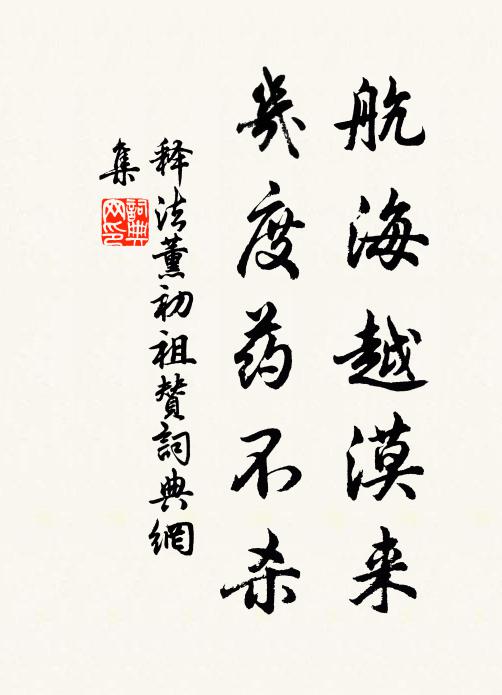 航海越漠来
几度药不杀
释法薰初祖赞詞典網
集
詞典网印